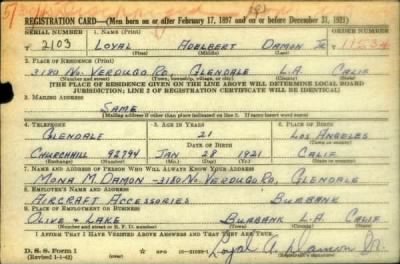 REGISTRATION CARD—(Men born on or after February 17, 1897 and on or before December 31, 1921)
SERIAL NUMBER 1. NAME (Print) ORDER NUMBER
2103 LOYAL ADELBERT DAMON JR 11534
(First) (Middle) (Last)
2. PLACE OF RESIDENCE (Print)
3180 No. VERDUGO RD, GLENDALE L.A. CALIF
(Number and street) (Town, township, village, or city) (County) (State)
[THE PLACE OF RESIDENCE GIVEN ON THE LINE ABOVE WILL DETERMINE LOCAL BOARD
JURISDICTION; LINE 2 OF REGISTRATION CERTIFICATE WILL BE IDENTICAL]
3. MAILING ADDRESS
SAME
[Mailing address if other than place indicated on line 2. If same insert word same]
4. TELEPHONE 5. AGE IN YEARS 6. PLACE OF BIRTH
GLENDALE 21 LOS ANGELES
DATE OF BIRTH
CHURCHILL 92794 JAN 28 1921 CALIF
7. NAME AND ADDRESS OF PERSON WHO WILL ALWAYS KNOW YOUR ADDRESS
MONA M. DAMON — 3180 No. VERDUGO RD, GLENDALE
8. EMPLOYER'S NAME AND ADDRESS
AIRCRAFT ACCESSORIES BURBANK
9. PLACE OF EMPLOYMENT OR BUSINESS
OLIVE & LAKE BURBANK L.A. CALIF
(Number and street or R. F. D. number) (Town) (County) (State)
I AFFIRM THAT I HAVE VERIFIED ABOVE ANSWERS AND THAT THEY ARE TRUE.
D. S. S. Form 1
(Revised 1-1-42) GPO Loyal A. Damon Jr.